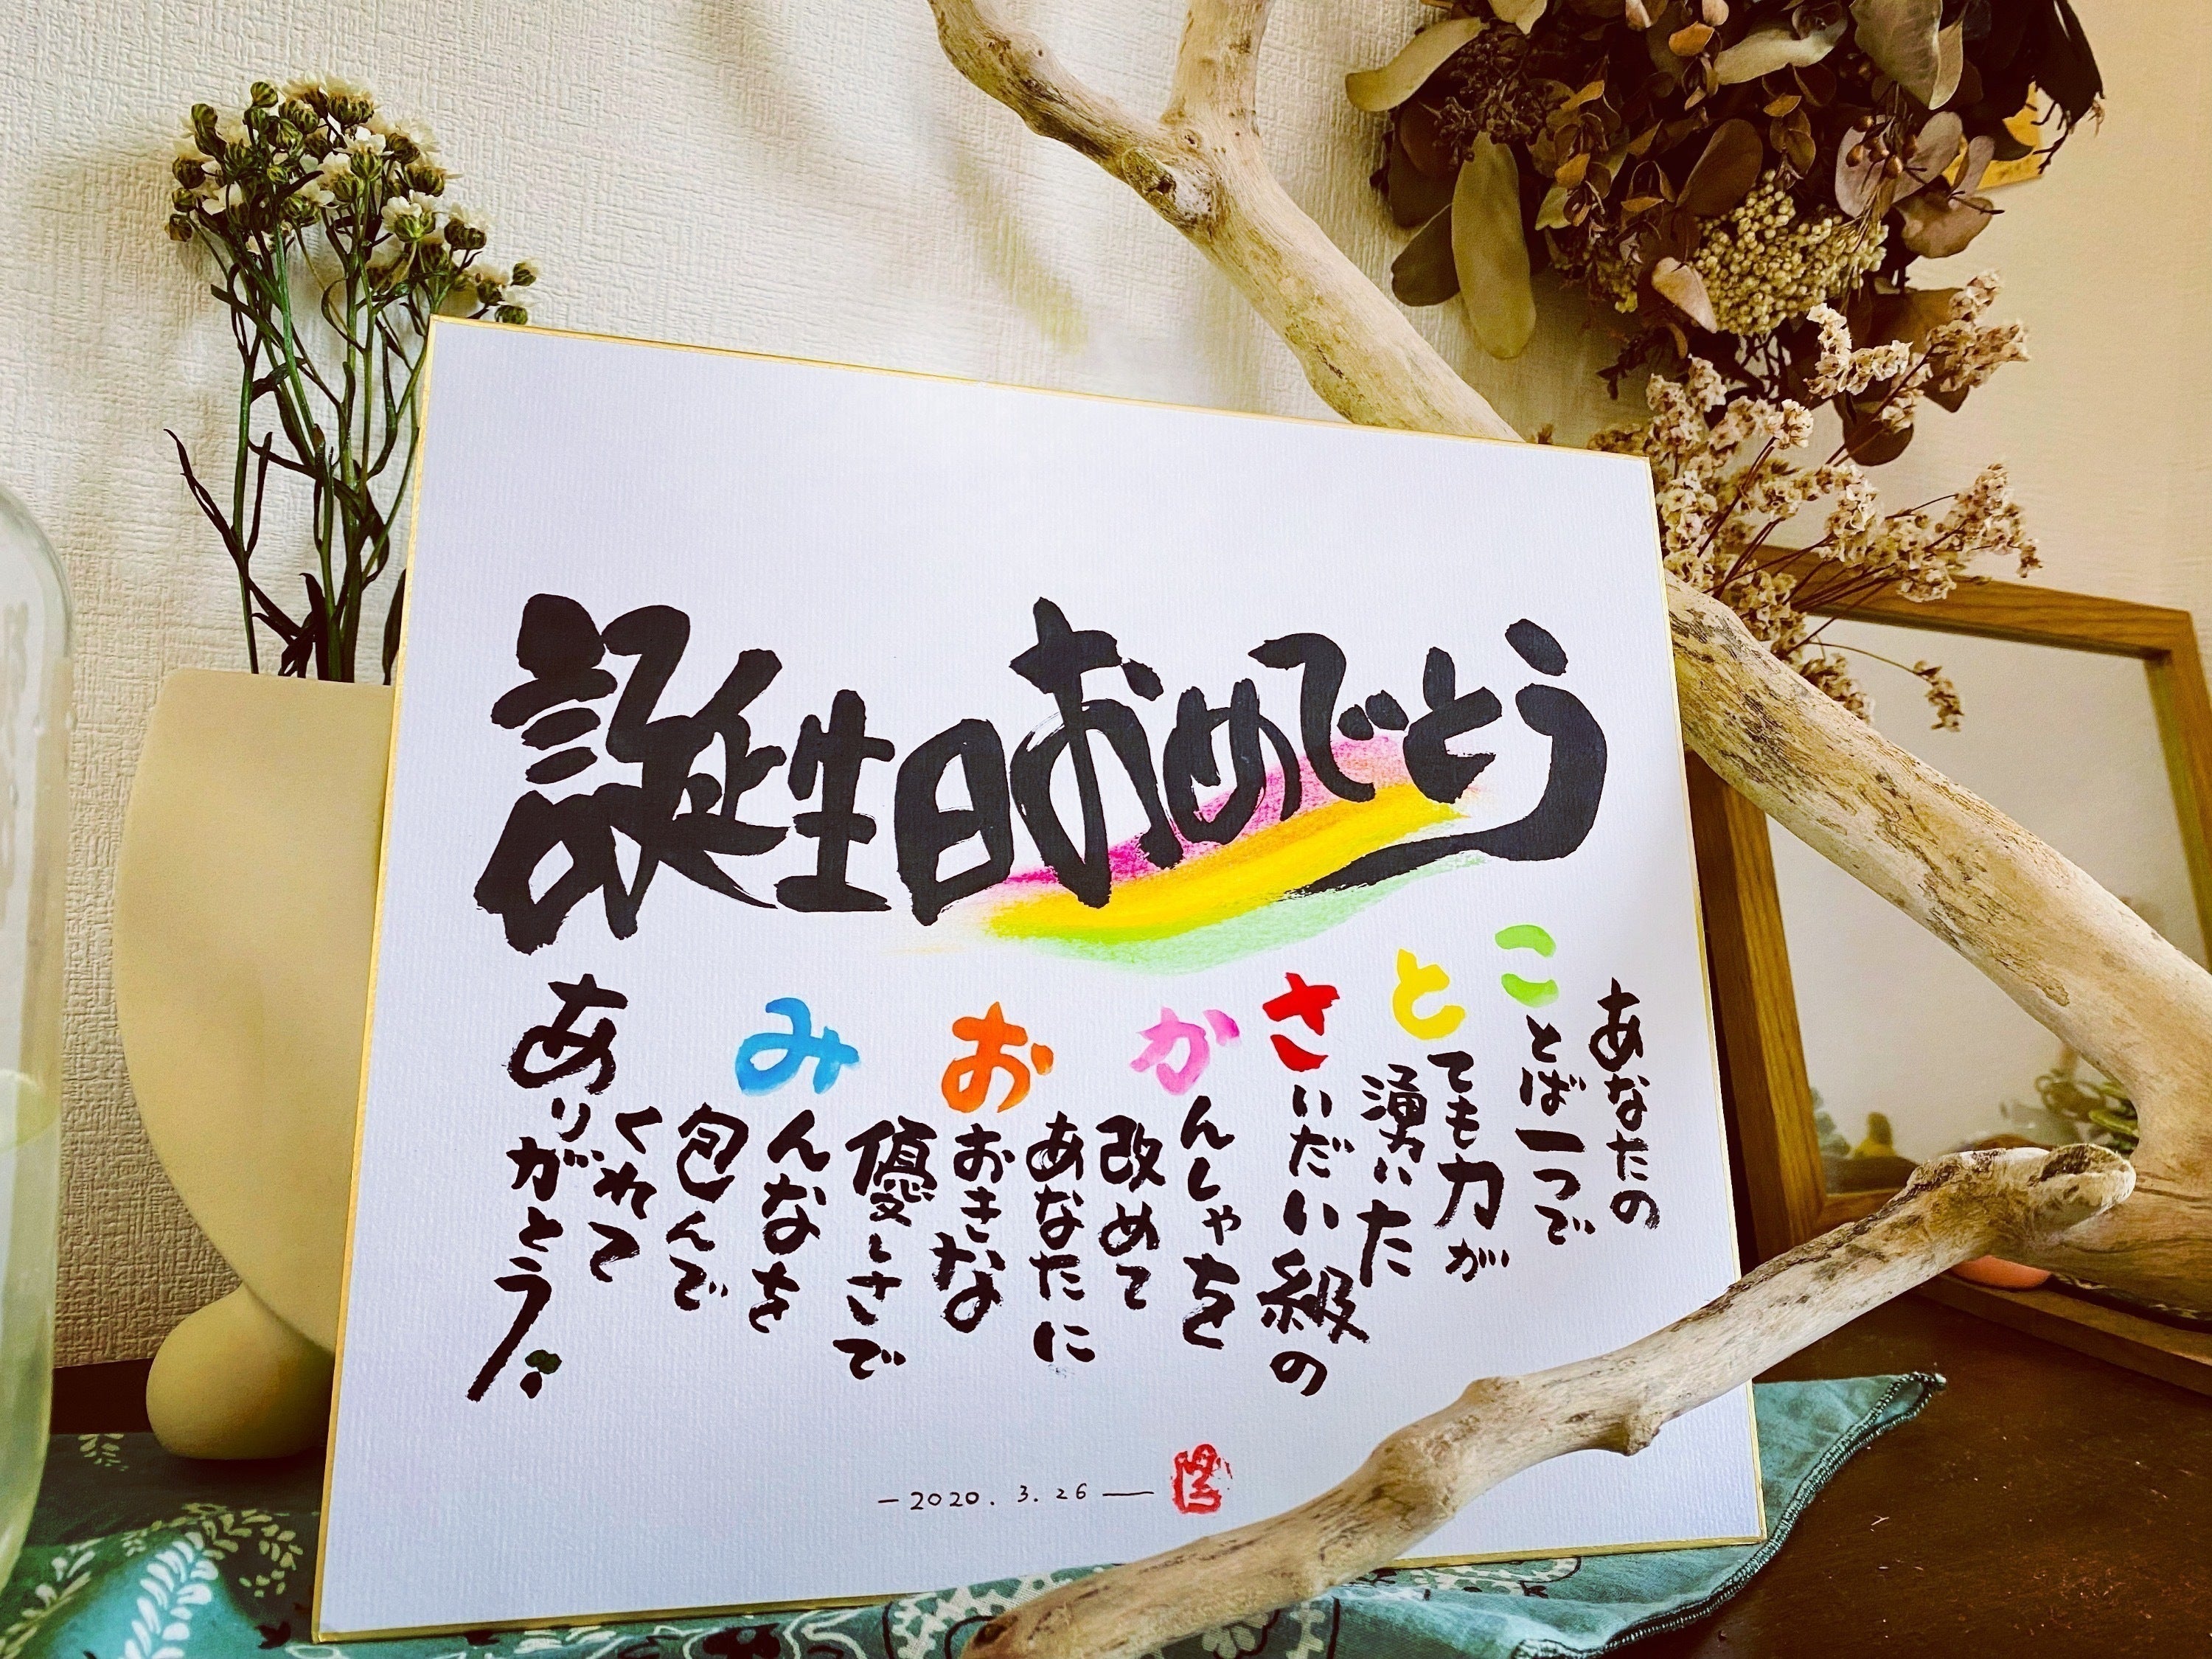 誕生日おめでとう
あなたの
ことば一つで
とても力が
湧いた
さいだい級の
かんしゃを
改めて
あなたに
おおきな
優しさで
みんなを
包んで
くれて
ありがとう
-2020.3.26-